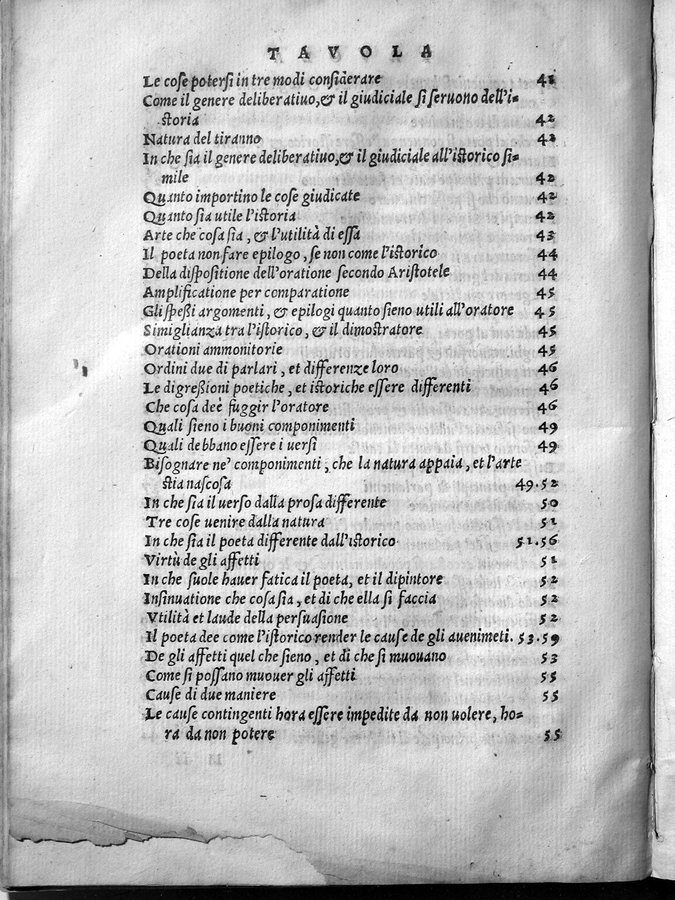 TAVOLA
Le cose potersi in tre modi considerare 41
Come il genere deliberatiuo, & il giudiciale si seruono dell'i-
storia 42
Natura del tiranno 42
In che sia il genere deliberatiuo, & il giudiciale all'istorico si-
mile 42
Quanto importino le cose giudicate 42
Quanto sia utile l'istoria 42
Arte che cosa sia, & l'utilità di essa 43
Il poeta non fare epilogo, se non come l'istorico 44
Della dispositione dell'oratione secondo Aristotele 44
Amplificatione per comparatione 45
Gli spessi argomenti, & epilogi quanto sieno utili all'oratore 45
Simiglianza tra l'istorico, & il dimostratore 45
Orationi ammonitorie 45
Ordini due di parlari, et differenze loro 46
Le digressioni poetiche, et istoriche essere differenti 46
Che cosa deè fuggir l'oratore 46
Quali sieno i buoni componimenti 49
Quali debbano essere i uersi 49
Bisognare ne' componimenti, che la natura appaia, et l'arte
stia nascosa 49.52
In che sia il uerso dalla prosa differente 50
Tre cose uenire dalla natura 51
In che sia il poeta differente dall'istorico 51.56
Virtù de gli affetti 51
In che suole hauer fatica il poeta, et il dipintore 52
Insinuatione che cosa sia, et di che ella si faccia 52
Vtilità et laude della persuasione 52
Il poeta dee come l'istorico render le cause de gli auenimeti. 53.59
De gli affetti quel che sieno, et di che si muouano 53
Come si possano muouer gli affetti 55
Cause di due maniere 55
Le cause contingenti hora essere impedite da non uolere, ho-
ra da non potere 55